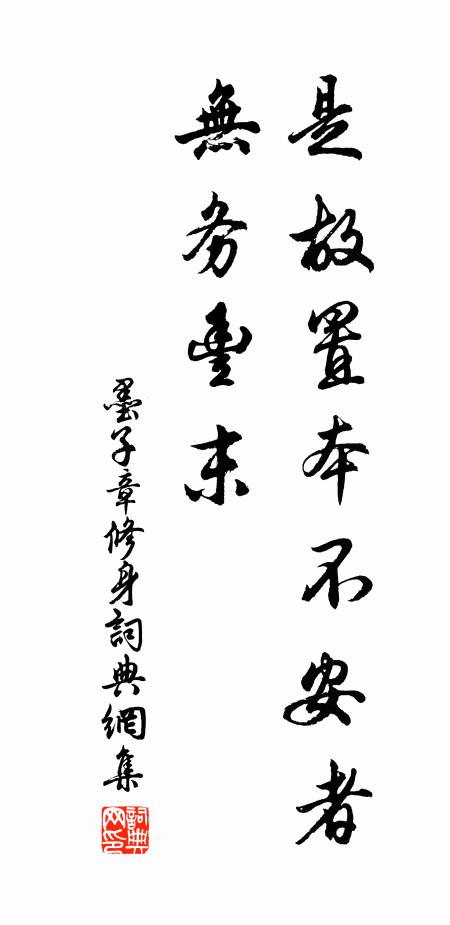 是故置本不安者
無务豐末
墨子章修身詞典網集
詞典网印